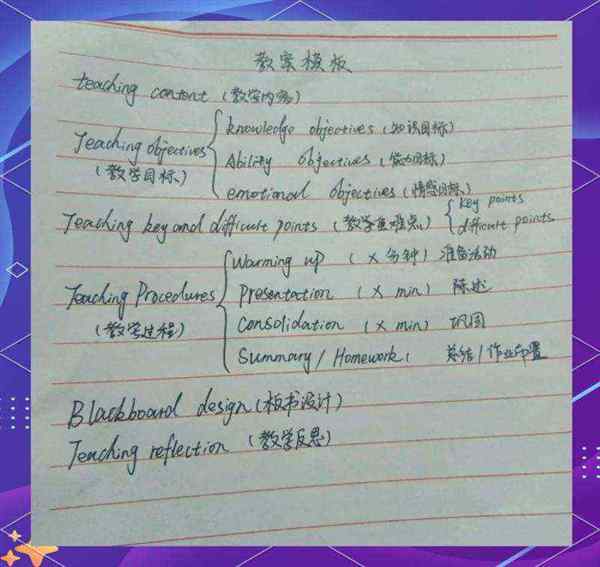 教案模板
teaching content (教学内容)
Teaching objectives (教学目标)
knowledge objectives (知识目标)
Ability objectives (能力目标)
emotional objectives (情感目标)
Teaching key and difficult points (教学重难点)
key points
difficult points
Teaching Procedures (教学过程)
Warming up (X分钟) 准备活动
Presentation (X min) 陈述
Consolidation (X min) 巩固
Summary / Homework 总结/作业布置
Blackboard design (板书设计)
Teaching reflection (教学反思)